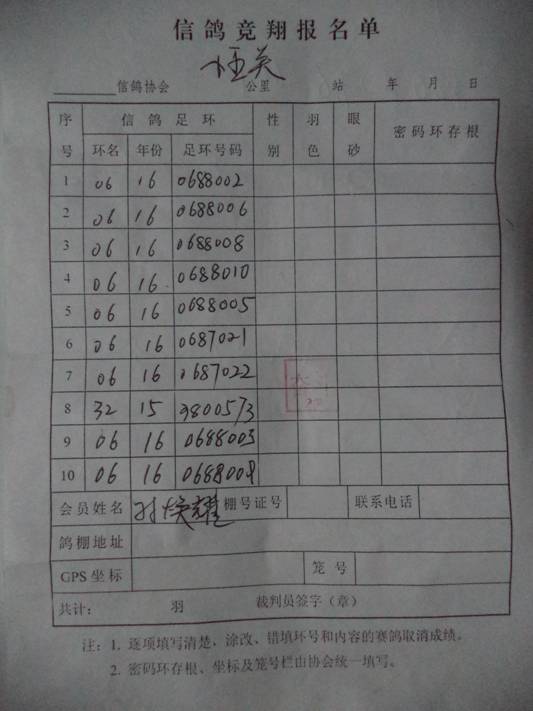 信鸽竞翔报名单
信鸽协会 公里 站 年 月 日
序号 信鸽足环 性别 羽色 眼砂 密码环存根
环名 年份 足环号码
1 06 16 0688002
2 06 16 0688006
3 06 16 0688008
4 06 16 0688010
5 06 16 0688005
6 06 16 0687021
7 06 16 0687022
8 32 15 9800573
9 06 16 0688003
10 06 16 0688009
会员姓名 焕耀 棚号证号 联系电话
鸽棚地址
GPS坐标 笼号
共计: 羽 裁判员签字(章)
注:1. 逐项填写清楚、涂改、错填环号和内容的赛鸽取消成绩。
2. 密码环存根、坐标及笼号栏由协会统一填写。